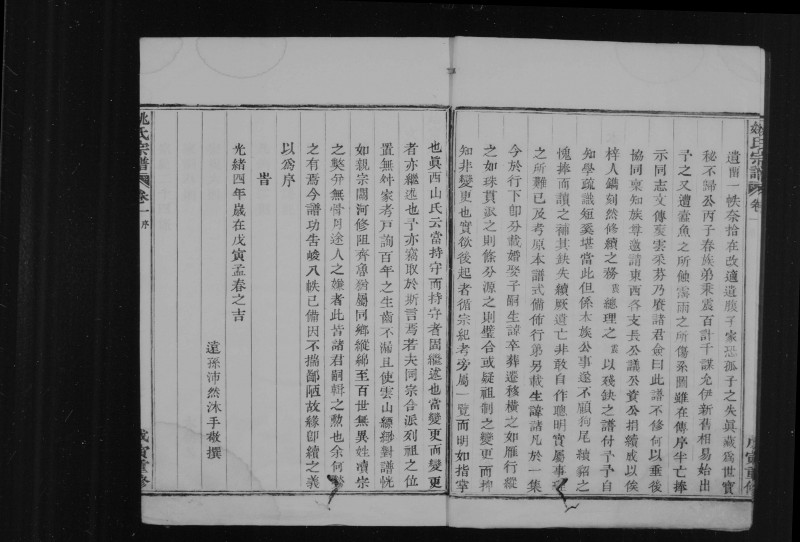 姚氏宗譜 卷一
戊寅重修
遺留一帙奈拾在改適遺腹子家恐孤子之失眞藏爲世寶
秘不歸公丙子春族弟乘震百計千謀允伊新舊相易始出
予之又遭蠹魚之所蝕瀉雨之所傷系圖雖在傳序半亡捧
示同志文傳雯雲采芬乃賡諸君僉曰此譜不修何以垂後
協同稟知族尊邀請東西各支長公議公資公捐續成以俟
梓人鐫刻然修續之務 震總理之 震以殘缺之譜付予予自
知學疏識短奚堪當此但係本族公事遂不顧狗尾續貂之
愧捧而讀之補其缺失續厥遺亡非敢自作聰明實屬事理
之所難已及考原本譜式備佈行第另載生諱諸凡於一集
今於行下卽分載婚娶子嗣生諱卒葬遷移橫之如雁行縱
之如珠貫派之則條分源之則璧合或疑祖制之變更而抑
知非變更也實欲後起者循宗紀考旁屬一覽而明如指掌
也眞西山氏云當持守而持守者固繼述也當變更而變更
者亦繼述也予亦竊取於斯言焉若夫同宗合派列祖之位
置無舛家考戶詢百年之生齒不漏且使雲山縹緲對譜恍
如親宗關河修阻齊魯猶屬同鄉縱綿至百世無異姓瀆宗
之獘弁無骨肉途人之嫌者此皆諸君嗣輯之勲也余何
之有焉今譜功告峻八帙已備因不揣鄙陋故緣卽續之義
以爲序
旹
光緒四年歲在戊寅孟春之吉
遠孫沛然沐手敬撰
姚氏宗譜 卷一 序
戊寅重修